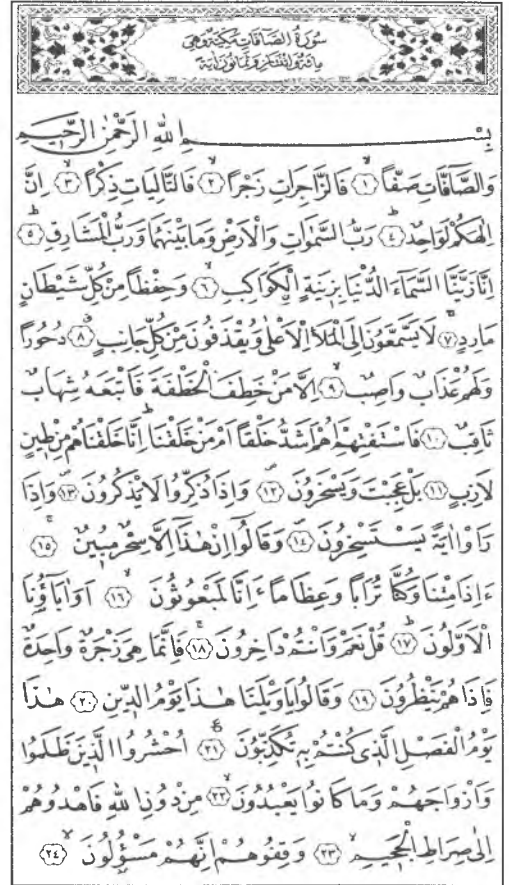 سُورَةُ الصَّافَّاتِ مَكِّيَّةٌ وَهِيَ
مِائَةٌ وَاثْنَتَانِ وَثَمَانُونَ اٰيَةً
بِسْمِ اللهِ الرَّحْمٰنِ الرَّحٖيمِ
وَالصَّٓافَّاتِ صَفًّاۙ ﴿١﴾ فَالزَّاجِرَاتِ زَجْرًاۙ ﴿٢﴾ فَالتَّالِيَاتِ ذِكْرًاۙ ﴿٣﴾ اِنَّ
اِلٰهَكُمْ لَوَاحِدٌؕ ﴿٤﴾ رَبُّ السَّمٰوَاتِ وَالْاَرْضِ وَمَا بَيْنَهُمَا وَرَبُّ الْمَشَارِقِؕ ﴿٥﴾
اِنَّا زَيَّنَّا السَّمَٓاءَ الدُّنْيَا بِزٖينَةٍ الْكَوَاكِبِۙ ﴿٦﴾ وَحِفْظًا مِنْ كُلِّ شَيْطَانٍ
مَارِدٍۚ ﴿٧﴾ لَا يَسَّمَّعُونَ اِلَى الْمَلَأِ الْاَعْلٰى وَيُقْذَفُونَ مِنْ كُلِّ جَانِبٍۗ ﴿٨﴾ دُحُورًا
وَلَهُمْ عَذَابٌ وَاصِبٌۙ ﴿٩﴾ اِلَّا مَنْ خَطِفَ الْخَطْفَةَ فَاَتْبَعَهُ شِهَابٌ
ثَاقِبٌ ﴿١٠﴾ فَاسْتَفْتِهِمْ اَهُمْ اَشَدُّ خَلْقًا اَمْ مَنْ خَلَقْنَاؕ اِنَّا خَلَقْنَاهُمْ مِنْ طٖينٍ
لَازِبٍ ﴿١١﴾ بَلْ عَجِبْتَ وَيَسْخَرُونَۖ ﴿١٢﴾ وَاِذَا ذُكِّرُوا لَا يَذْكُرُونَۖ ﴿١٣﴾ وَاِذَا
رَاَوْا اٰيَةً يَسْتَسْخِرُونَۖ ﴿١٤﴾ وَقَالُٓوا اِنْ هٰذَٓا اِلَّا سِحْرٌ مُبٖينٌۚ ﴿١٥﴾
ءَاِذَا مِتْنَا وَكُنَّا تُرَابًا وَعِظَامًا ءَاِنَّا لَمَبْعُوثُونَۙ ﴿١٦﴾ اَوَاٰبَٓاؤُ۬نَا
الْاَوَّلُونَؕ ﴿١٧﴾ قُلْ نَعَمْ وَاَنْتُمْ دَاخِرُونَۚ ﴿١٨﴾ فَاِنَّمَا هِيَ زَجْرَةٌ وَاحِدَةٌ
فَاِذَا هُمْ يَنْظُرُونَ ﴿١٩﴾ وَقَالُوا يَا وَيْلَنَا هٰذَا يَوْمُ الدّٖينِ ﴿٢٠﴾ هٰذَا
يَوْمُ الْفَصْلِ الَّذٖي كُنْتُمْ بِهٖ تُكَذِّبُونَ ﴿٢١﴾ اُحْشُرُوا الَّذٖينَ ظَلَمُوا
وَاَزْوَاجَهُمْ وَمَا كَانُوا يَعْبُدُونَۙ ﴿٢٢﴾ مِنْ دُونِ اللهِ فَاهْدُوهُمْ
اِلٰى صِرَاطِ الْجَحٖيمِۙ ﴿٢٣﴾ وَقِفُوهُمْ اِنَّهُمْ مَسْؤُ۫لُونَۙ ﴿٢٤﴾